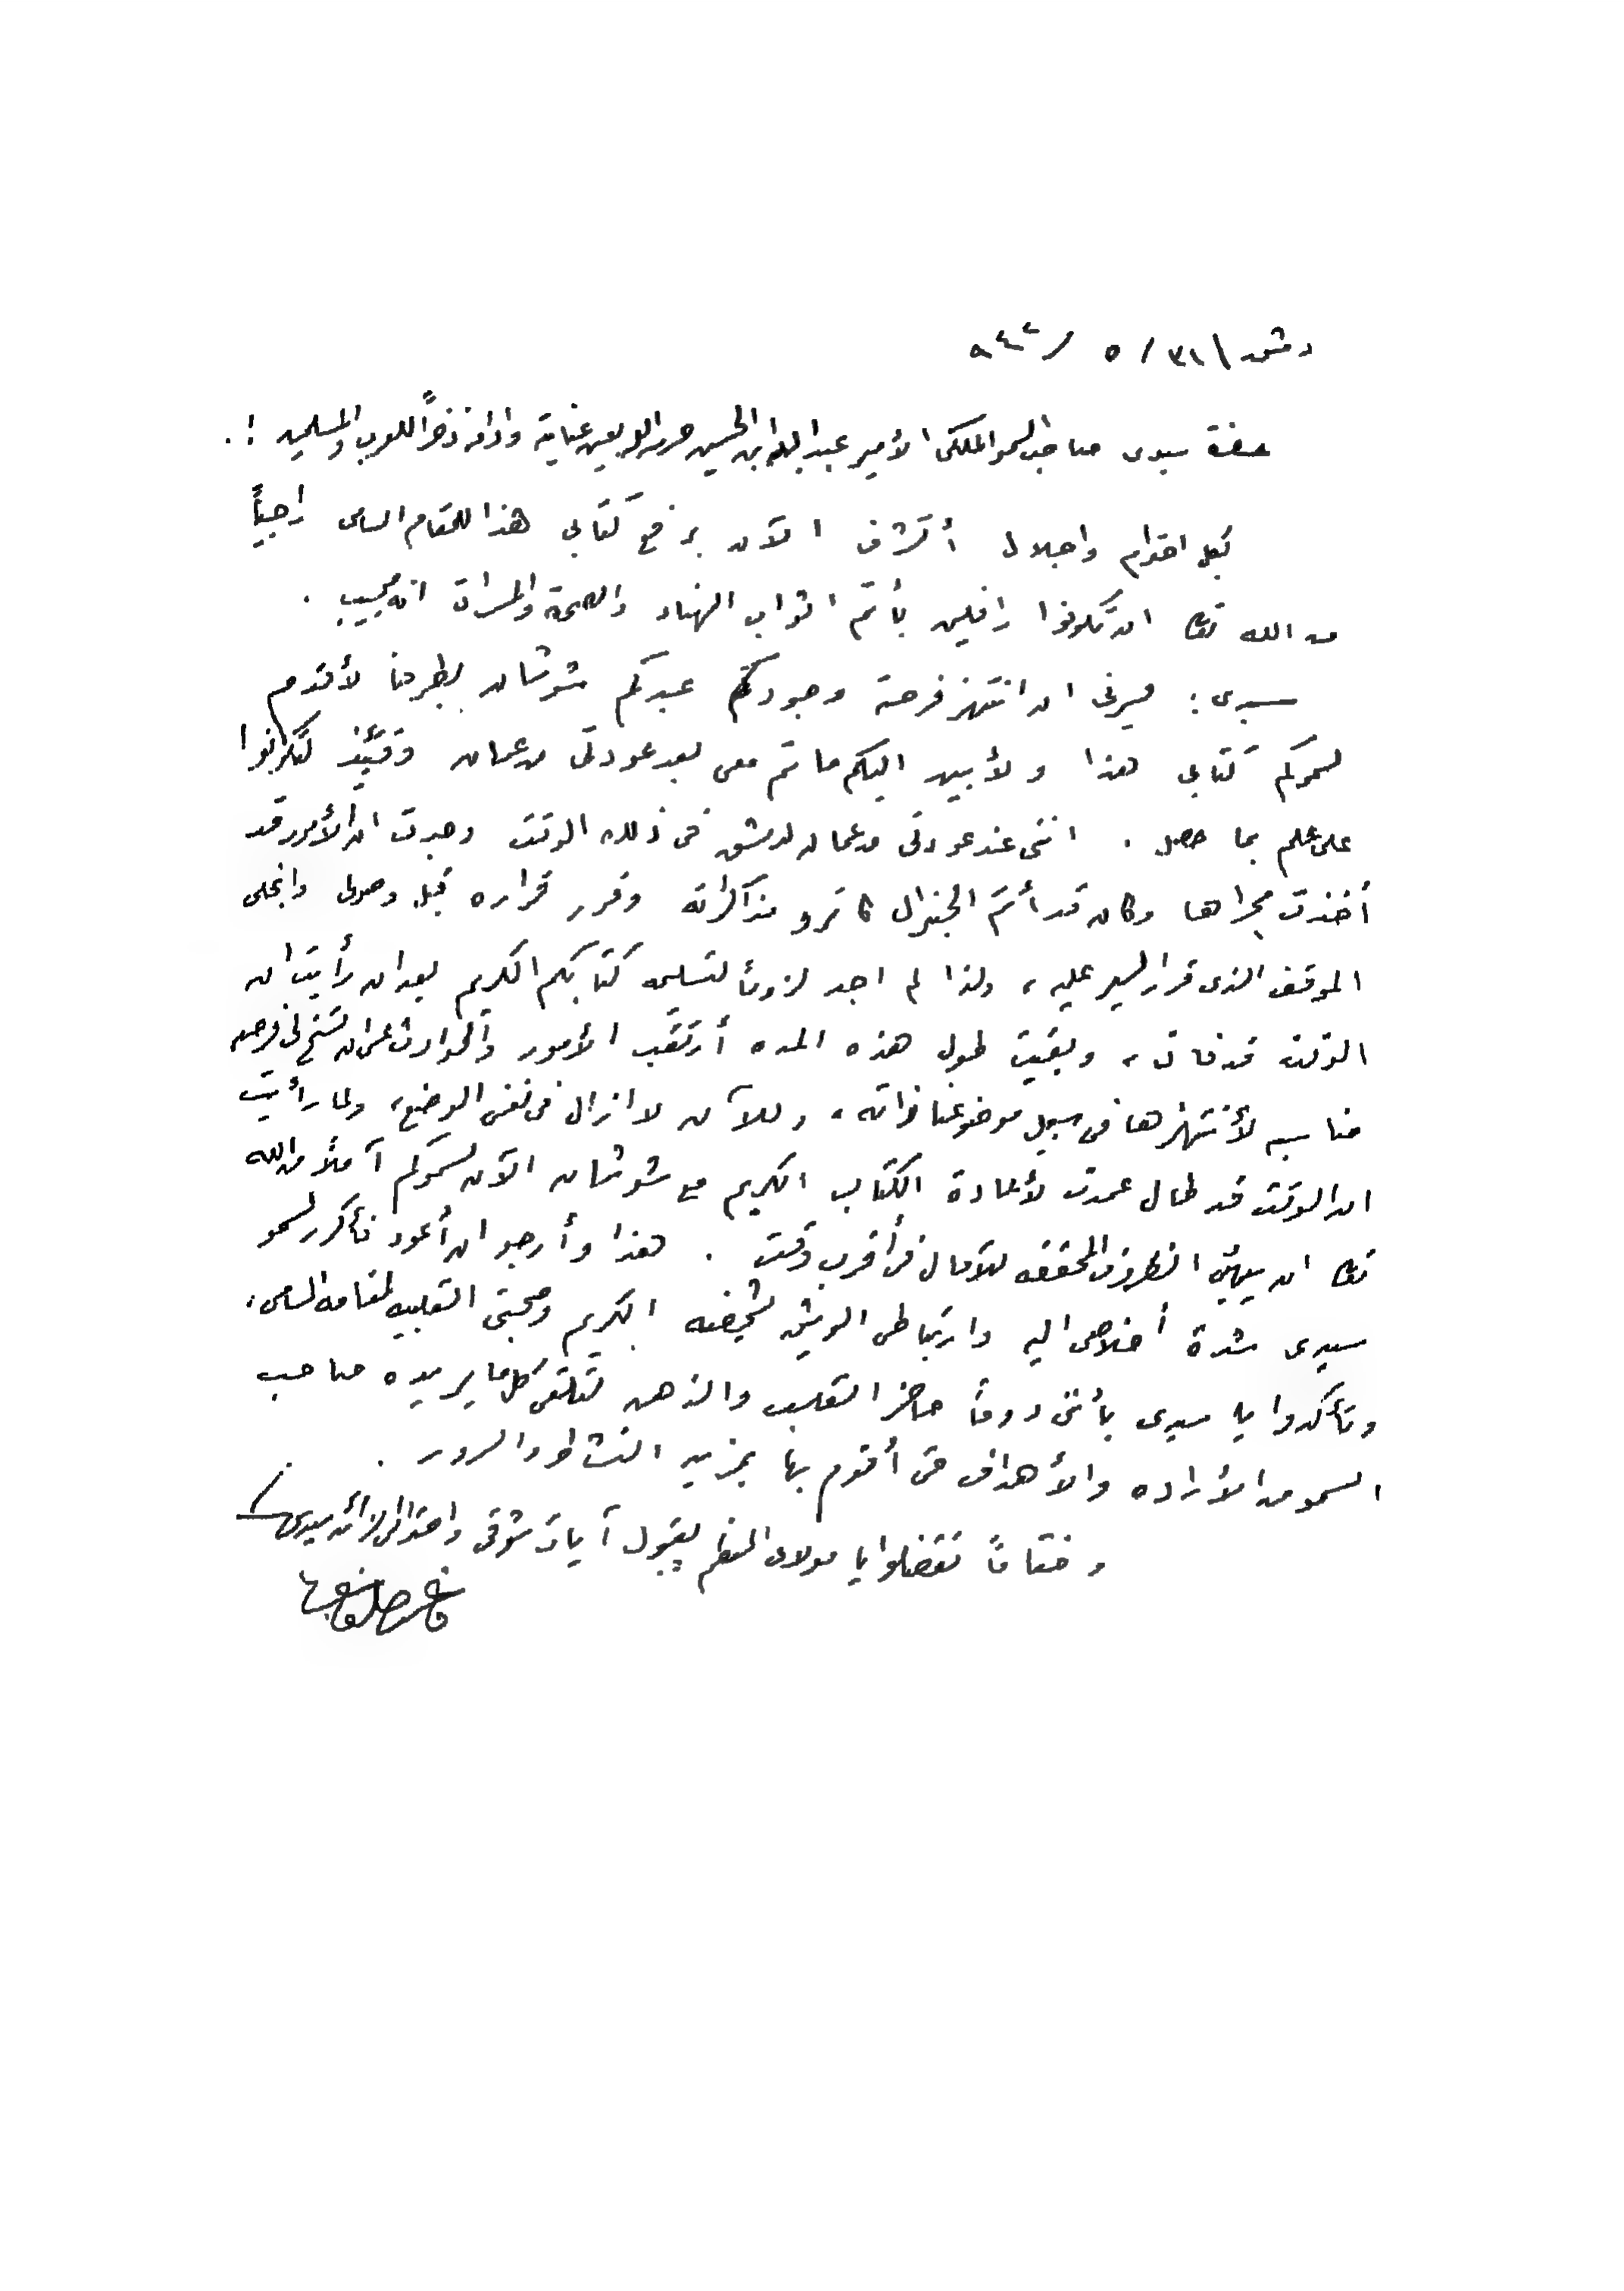 دمشق ٣١ / ٥ / ٩٤٢
حضرة سيدي صاحب السمو الملكي الأمير عبد الله ابن الحسين حرسه الله بعين عنايته وادامه ذخراً للعرب والمسلمين !.
بكل احترام واجلال أتشرف الآن برفع كتابي هذا للمقام السامي راجياً
من الله تعالى ان تكونوا رافلين بأتم اثواب الهناء والصحة والمسرات انه مجيب .
سيدي : يسرني ان انتهز فرصة وجود عبدكم شوشان بطرفنا لأقدم
لسموكم كتابي هذا ولأبين اليكم ما تم معي بعد عودتي من عمان وقتئذ لتكونوا
على علم بما حصل . انني عند عودتي من عمان لدمشق في ذلك الوقت وجدت ان الأمور قد
أخذت مجراها وكان قد أتم الجنرال كاترو مذاكراته وقرر قراره قبل وصولي وانجلى
الموقف الذي قرر السير عليه ، ولذا لم اجد لزوماً لتسليمه كتابكم الكريم بعد ان رأيت ان
الوقت قد فات ، وبقيت طول هذه المده أرتقب الأمور والحوادث عسى ان تسنح لي فرصه
مناسبه لأنتهزها في سبيل موضوعنا ذاته ، وللآن لا ازال في نفس الوضع ، ولما رأيت
ان الوقت قد طال عمدت لأعادة الكتاب الكريم مع شوشان الآن لسموكم آملاً من الله
تعالى ان يهيئ الظروف المحققه للآمال في أقرب وقت . هذا وأرجو ان أعود فأكرر لسمو
سيدي شدة أخلاصي اليه وارتباطي الوثيق لشخصه الكريم ومحبتي القلبيه لمقامه السامي ،
وتأكدوا يا سيدي بأنني دوماً حاضر القلب والذهن لتلقي كل ما يريده صاحب
السمو من الأراده والأهداف حتى أقوم بها بمزيد النشاط والسرور .
وختاماً تفضلوا يا مولاي المعظم بقبول آيات شوقي واحترامي سيدي